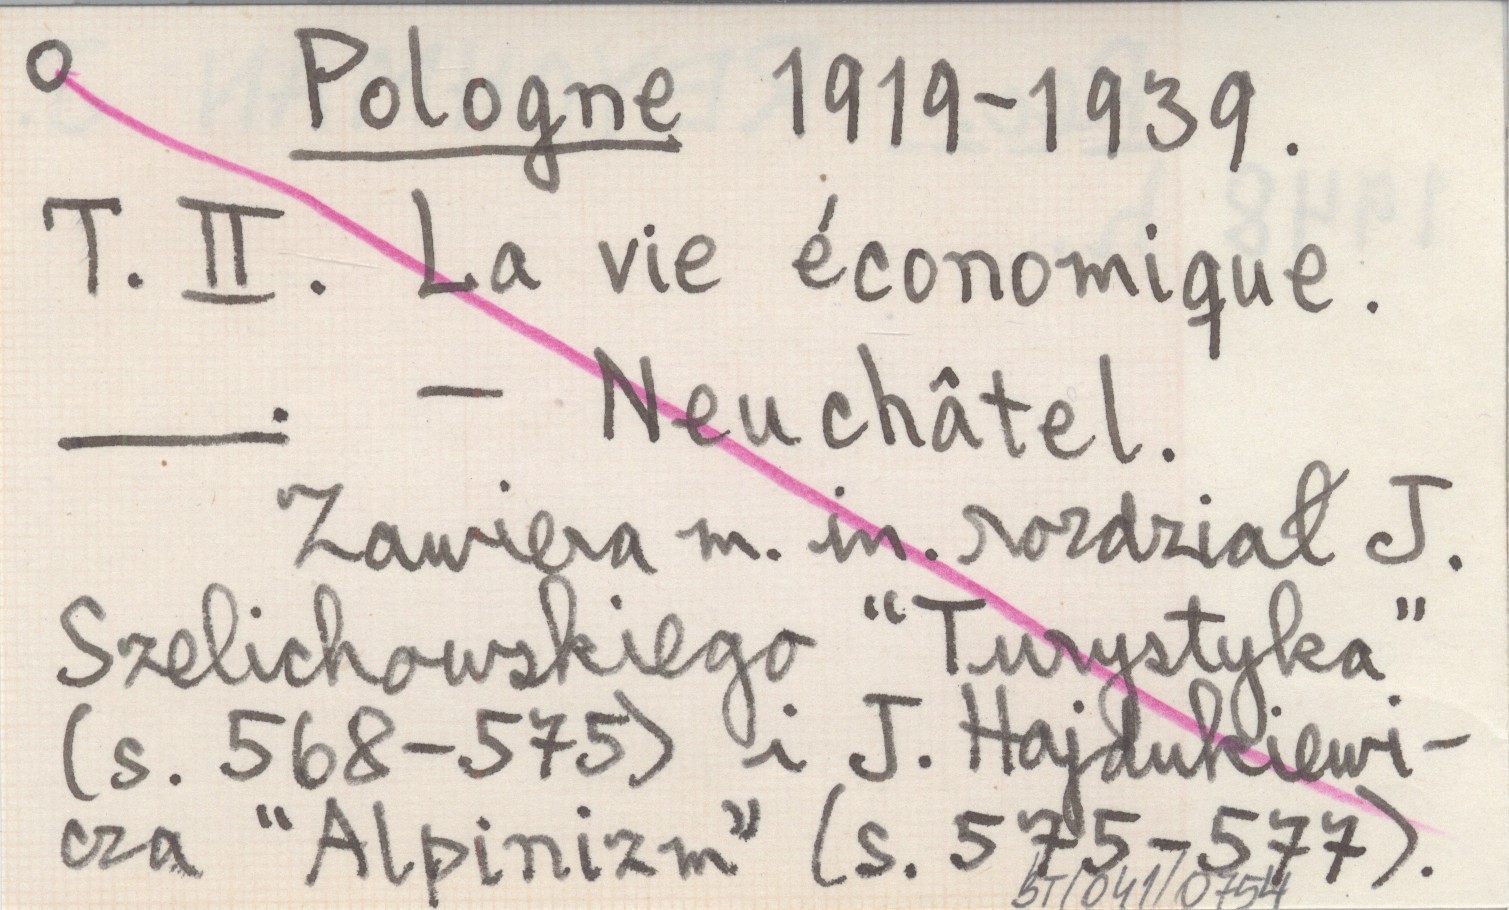 Pologne 1919-1939.
T. II. La vie économique.
____. — Neuchâtel.
Zawiera m. in. rozdział J.
Szelichowskiego “Turystyka”
(s. 568-575) i J. Hajdukiewi-
cza “Alpinizm” (s. 575-577).
ST/041/0754